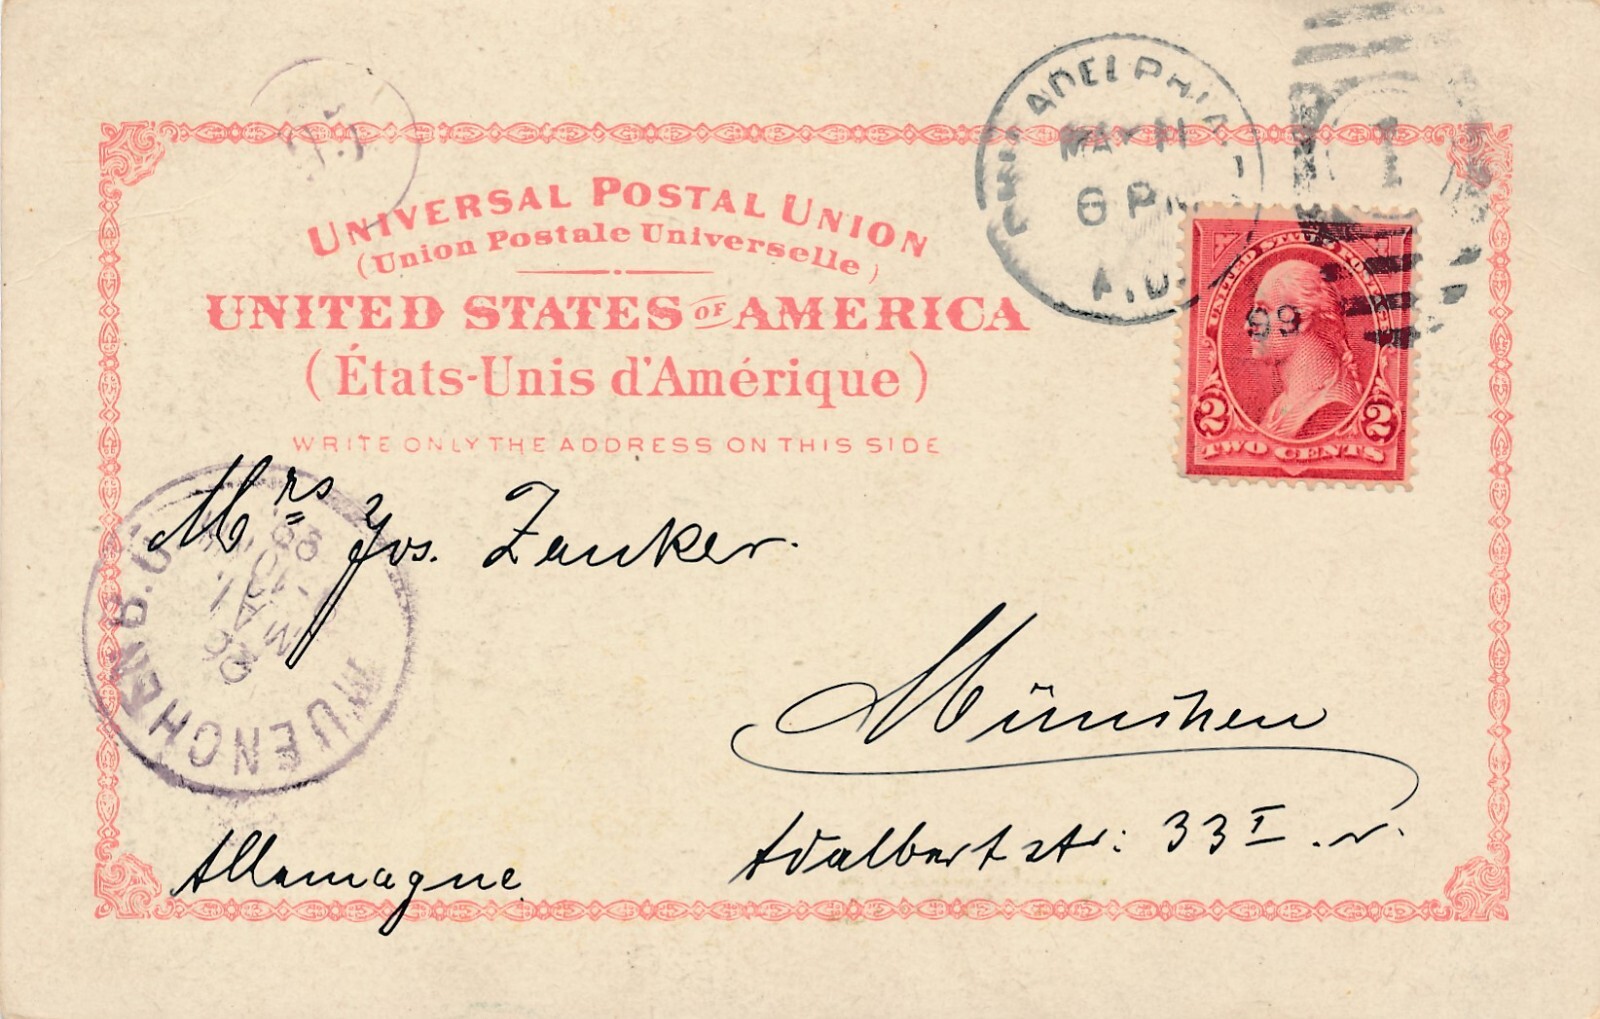 UNIVERSAL POSTAL UNION
(Union Postale Universelle)
UNITED STATES OF AMERICA
(États-Unis d'Amérique)
WRITE ONLY THE ADDRESS ON THIS SIDE
PHILADELPHIA
MAY 11
6 PM
99
1
UNITED STATES
2 2
TWO CENTS
Mrs Jos. Zanker.
MUENCHEN B.U.
26
MAI
München
Adalbertstr: 33 I. r.
Allemagne